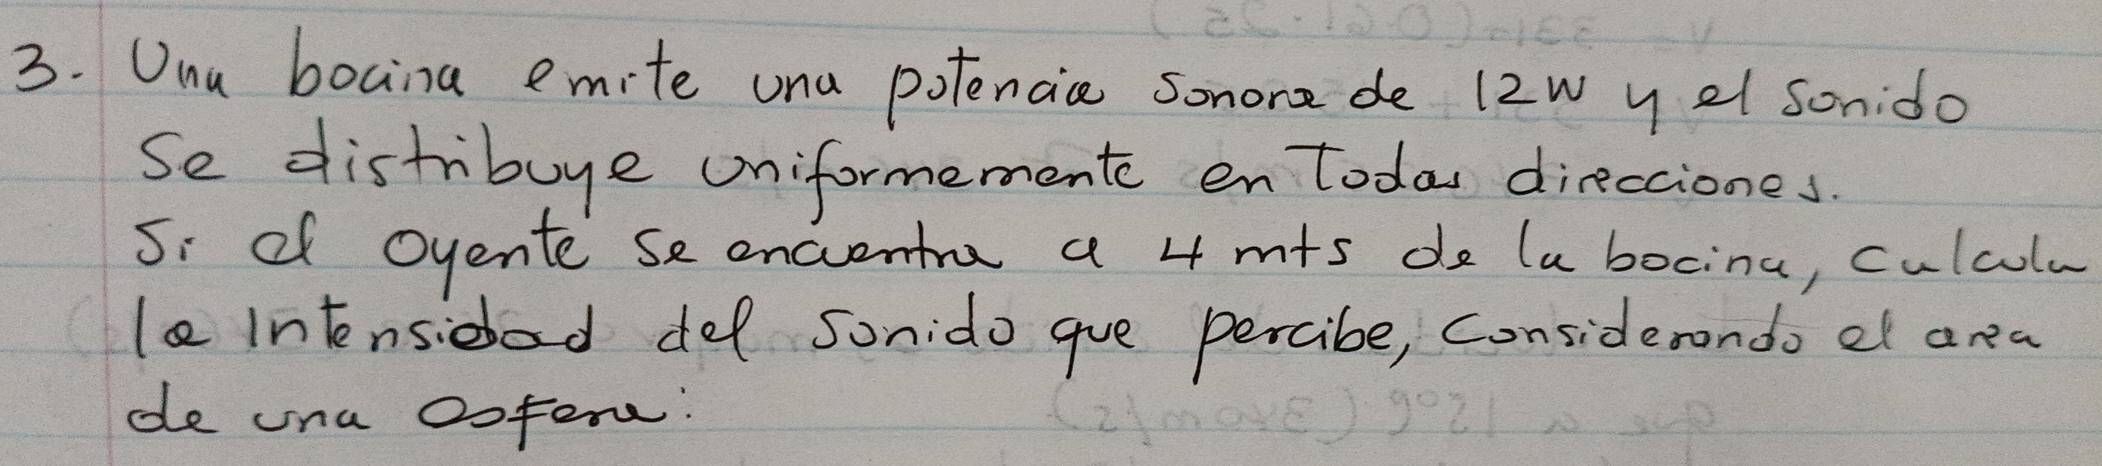 3. Una bocina emite una potencia sonora de 12W y el sonido
se distribuye uniformemente en Todas direcciones.
Si el oyente se encuentra a 4 mts de la bocina, calcula
la Intensidad del sonido que percibe, considerando el area
de una esfera: